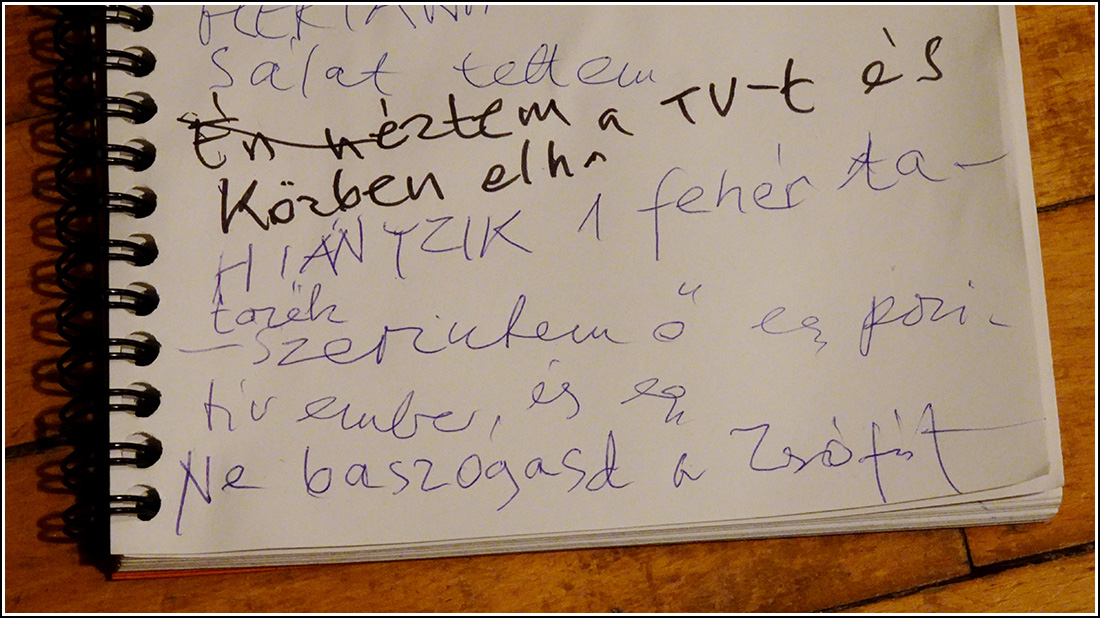 Sálat tettem
Én néztem a TV-t és
Közben elh
HIÁNYZIK 1 fehér ta-
– szerintem ő egy pozi-
tiv ember, és egy
Ne baszógasd a Zsófit